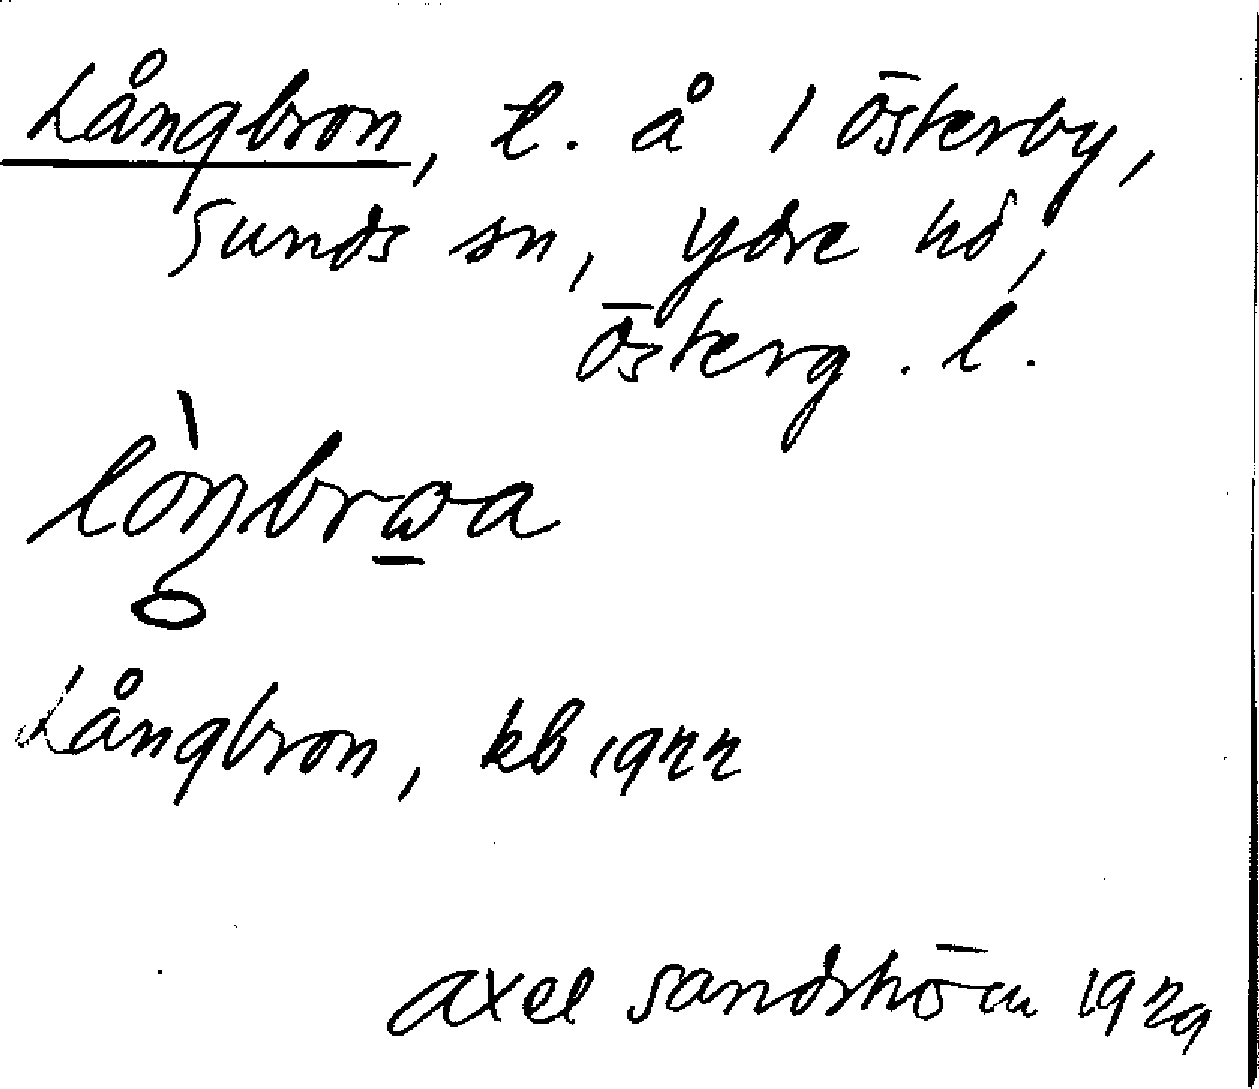 Långbron, t. å 1 Österby,
Sunds sn, Ydre hd,
Österg. l.
Långbron, kb 1922
Axel Sandström 1929